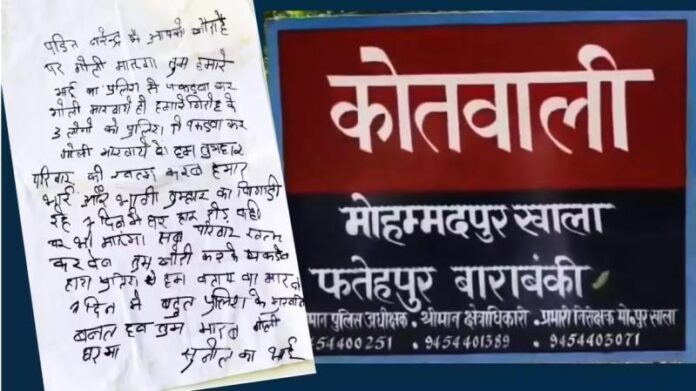 पंडित नरेन्द्र मै आपके चौराहे
पर गोली मारूगा तुम हमारे
भाई का पुलिस से पकडवा कर
गोली मारवाये हो हमारे गिरोह के
3 लोगो को पुलिस से पकडवा कर
गोली मारवाये हो हम तुम्हारे
परिवार को खत्म करबे हमार
भाई और भाभी तुम्हार का
रहे 7 दिन मे घर
पर भी मारूगा सब परिवार खत्म
करदेब तुम
पुलिस से हम बताय का मारब
7 दिन मे बहुत पुलिस के
बनत हव तुम मारब गोली
घर मा
सुनील का भाई
कोतवाली
मोहम्मदपुर खाला
फतेहपुर बाराबंकी
मान पुलिस अधीक्षक - श्रीमान क्षेत्राधिकारी - प्रभारी निरीक्षक मो०पुर खाला
454400251 9454401389 9454403071